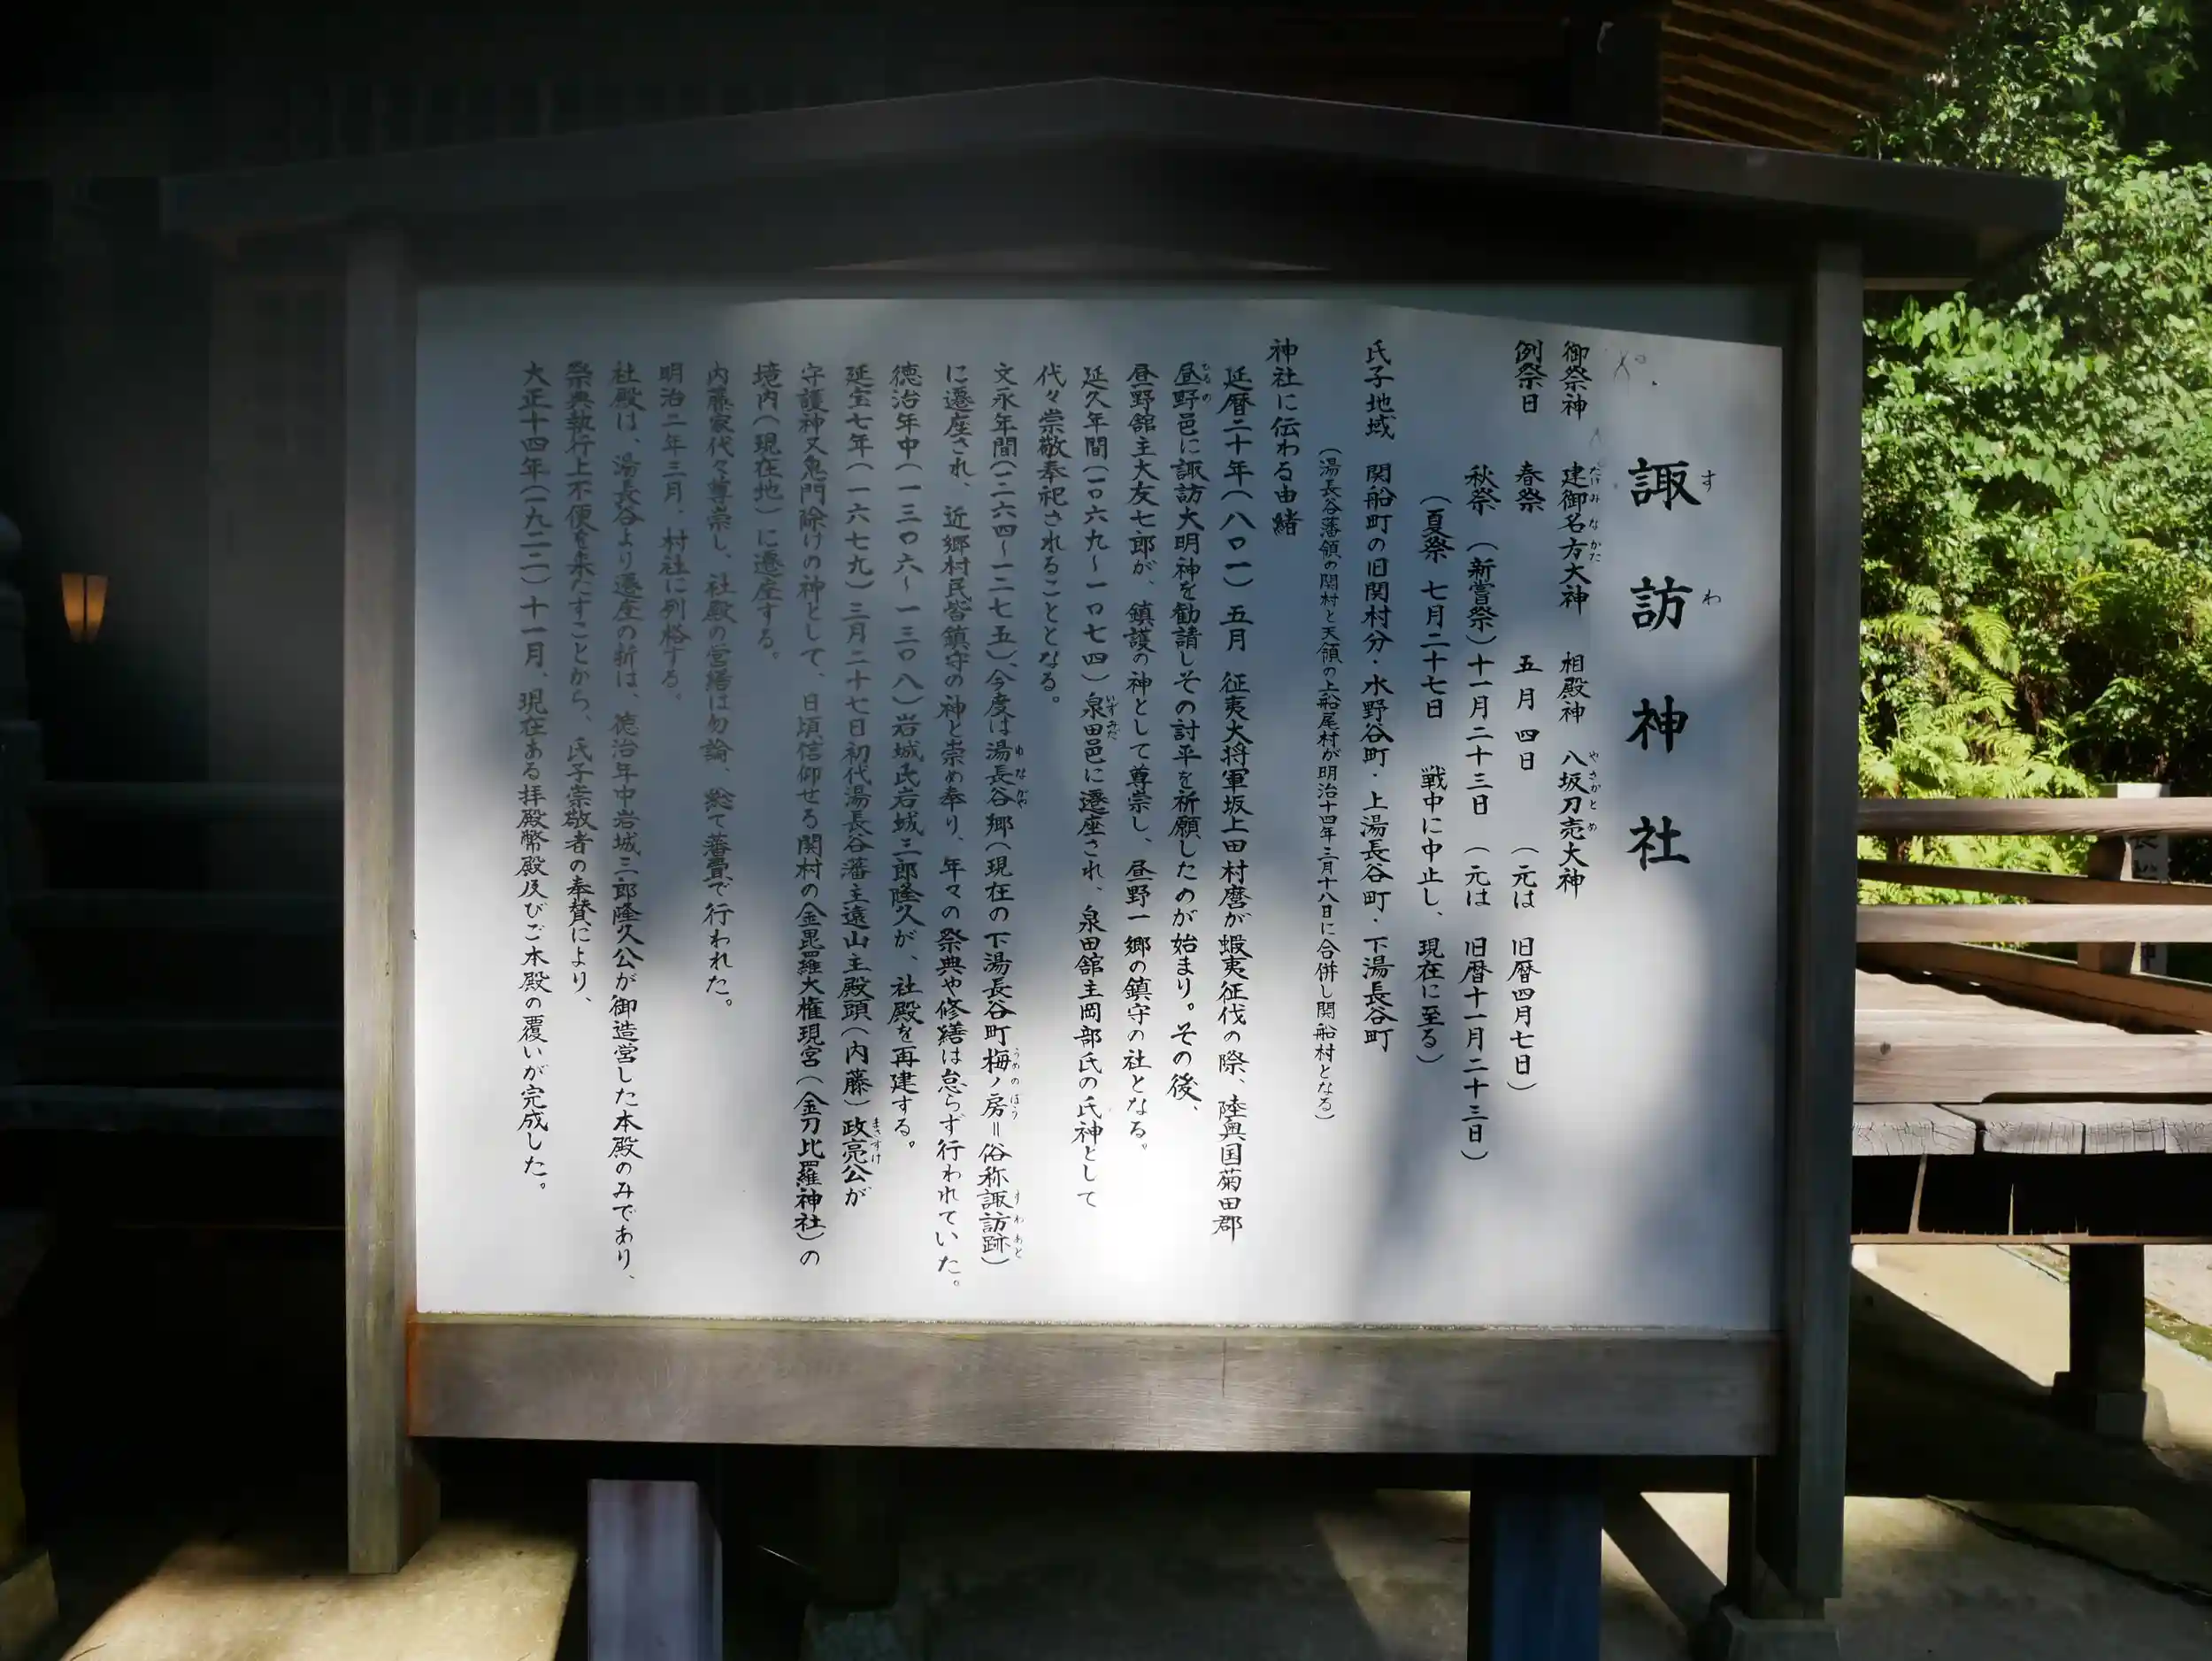 諏訪神社
御祭神 建御名方大神 相殿神 八坂刀売大神
例祭日 春祭 五月四日 (元は 旧暦四月七日)
秋祭 (新嘗祭)十一月二十三日 (元は 旧暦十一月二十三日)
(夏祭 七月二十七日 戦中に中止し、現在に至る)
氏子地域 関船町の旧関村分・水野谷町・上湯長谷町・下湯長谷町
(湯長谷藩領の関村と天領の上船尾村が明治十四年三月十八日に合併し関船村となる)
神社に伝わる由緒
延暦二十年(八〇一)五月 征夷大将軍坂上田村麿が蝦夷征伐の際、陸奥国菊田郡
昼野邑に諏訪大明神を勧請しその討平を祈願したのが始まり。その後、
昼野舘主大友七郎が、鎮護の神として尊崇し、昼野一郷の鎮守の社となる。
延久年間(一〇六九〜一〇七四)泉田邑に遷座され、泉田舘主岡部氏の氏神として
代々崇敬奉祀されることとなる。
文永年間(一二六四〜一二七五)、今度は湯長谷郷(現在の下湯長谷町梅ノ房=俗称諏訪跡)
に遷座され、近郷村民皆鎮守の神と崇め奉り、年々の祭典や修繕は怠らず行われていた。
徳治年中(一三〇六〜一三〇八)岩城氏岩城三郎隆久が、社殿を再建する。
延宝七年(一六七九)三月二十七日初代湯長谷藩主遠山主殿頭(内藤)政亮公が
守護神又鬼門除けの神として、日頃信仰せる関村の金毘羅大権現宮(金刀比羅神社)の
境内(現在地)に遷座する。
内藤家代々尊崇し、社殿の営繕は勿論、総て藩費で行われた。
明治二年三月、村社に列格する。
社殿は、湯長谷より遷座の折は、徳治年中岩城三郎隆久公が御造営した本殿のみであり、
祭典執行上不便を来たすことから、氏子崇敬者の奉賛により、
大正十四年(一九二二)十一月、現在ある拝殿幣殿及びご本殿の覆いが完成した。